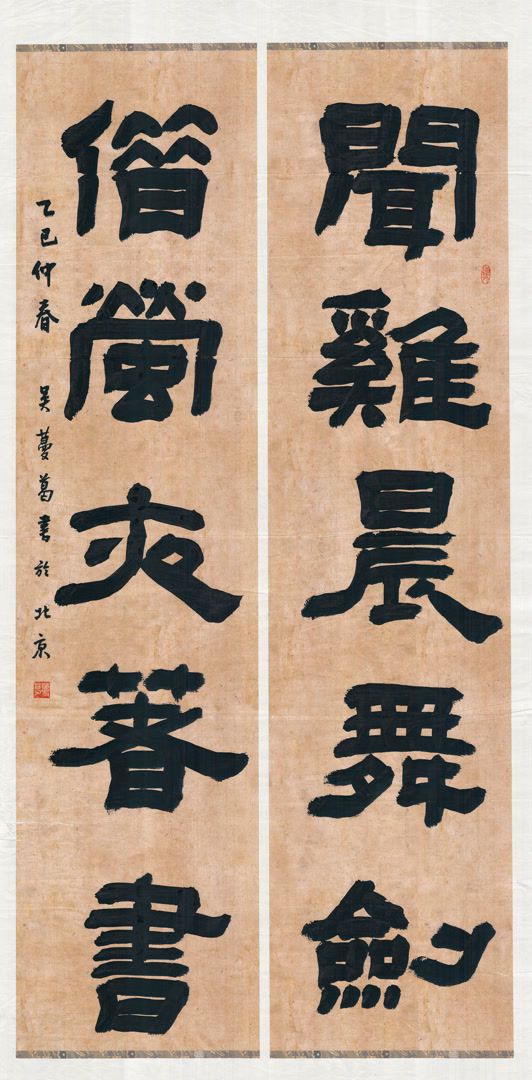 聞雞晨舞劍
借螢夜著書
乙巳仲春 吴蔓葛書於北京